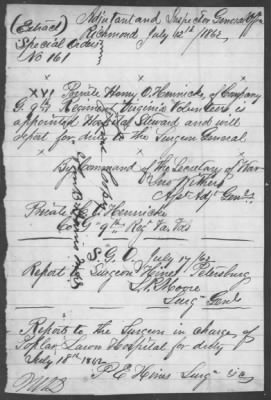 (Extract)
Adjutant and Inspector Generals Office
Richmond July 12th / 1862
Special Orders
No 161
XVI Private Henry C. Hennicke, of Company
G 9th Regiment Virginia Volunteers is
appointed Hospital Steward and will
report for duty to the Surgeon General
By Command of the Secretary of War
Jno Withers
Asst Adjt Genl
Private H. C. Hennicke
Co G 9th Regt Va Vols
S. G. O. July 17 / 62
Report Surgeon Hines, Petersburg
S. P. Moore
Surg Genl
Reports to the Surgeon in charge of
Poplar Lawn Hospital for duty
July 18th 1862
P. E. Hines Surg